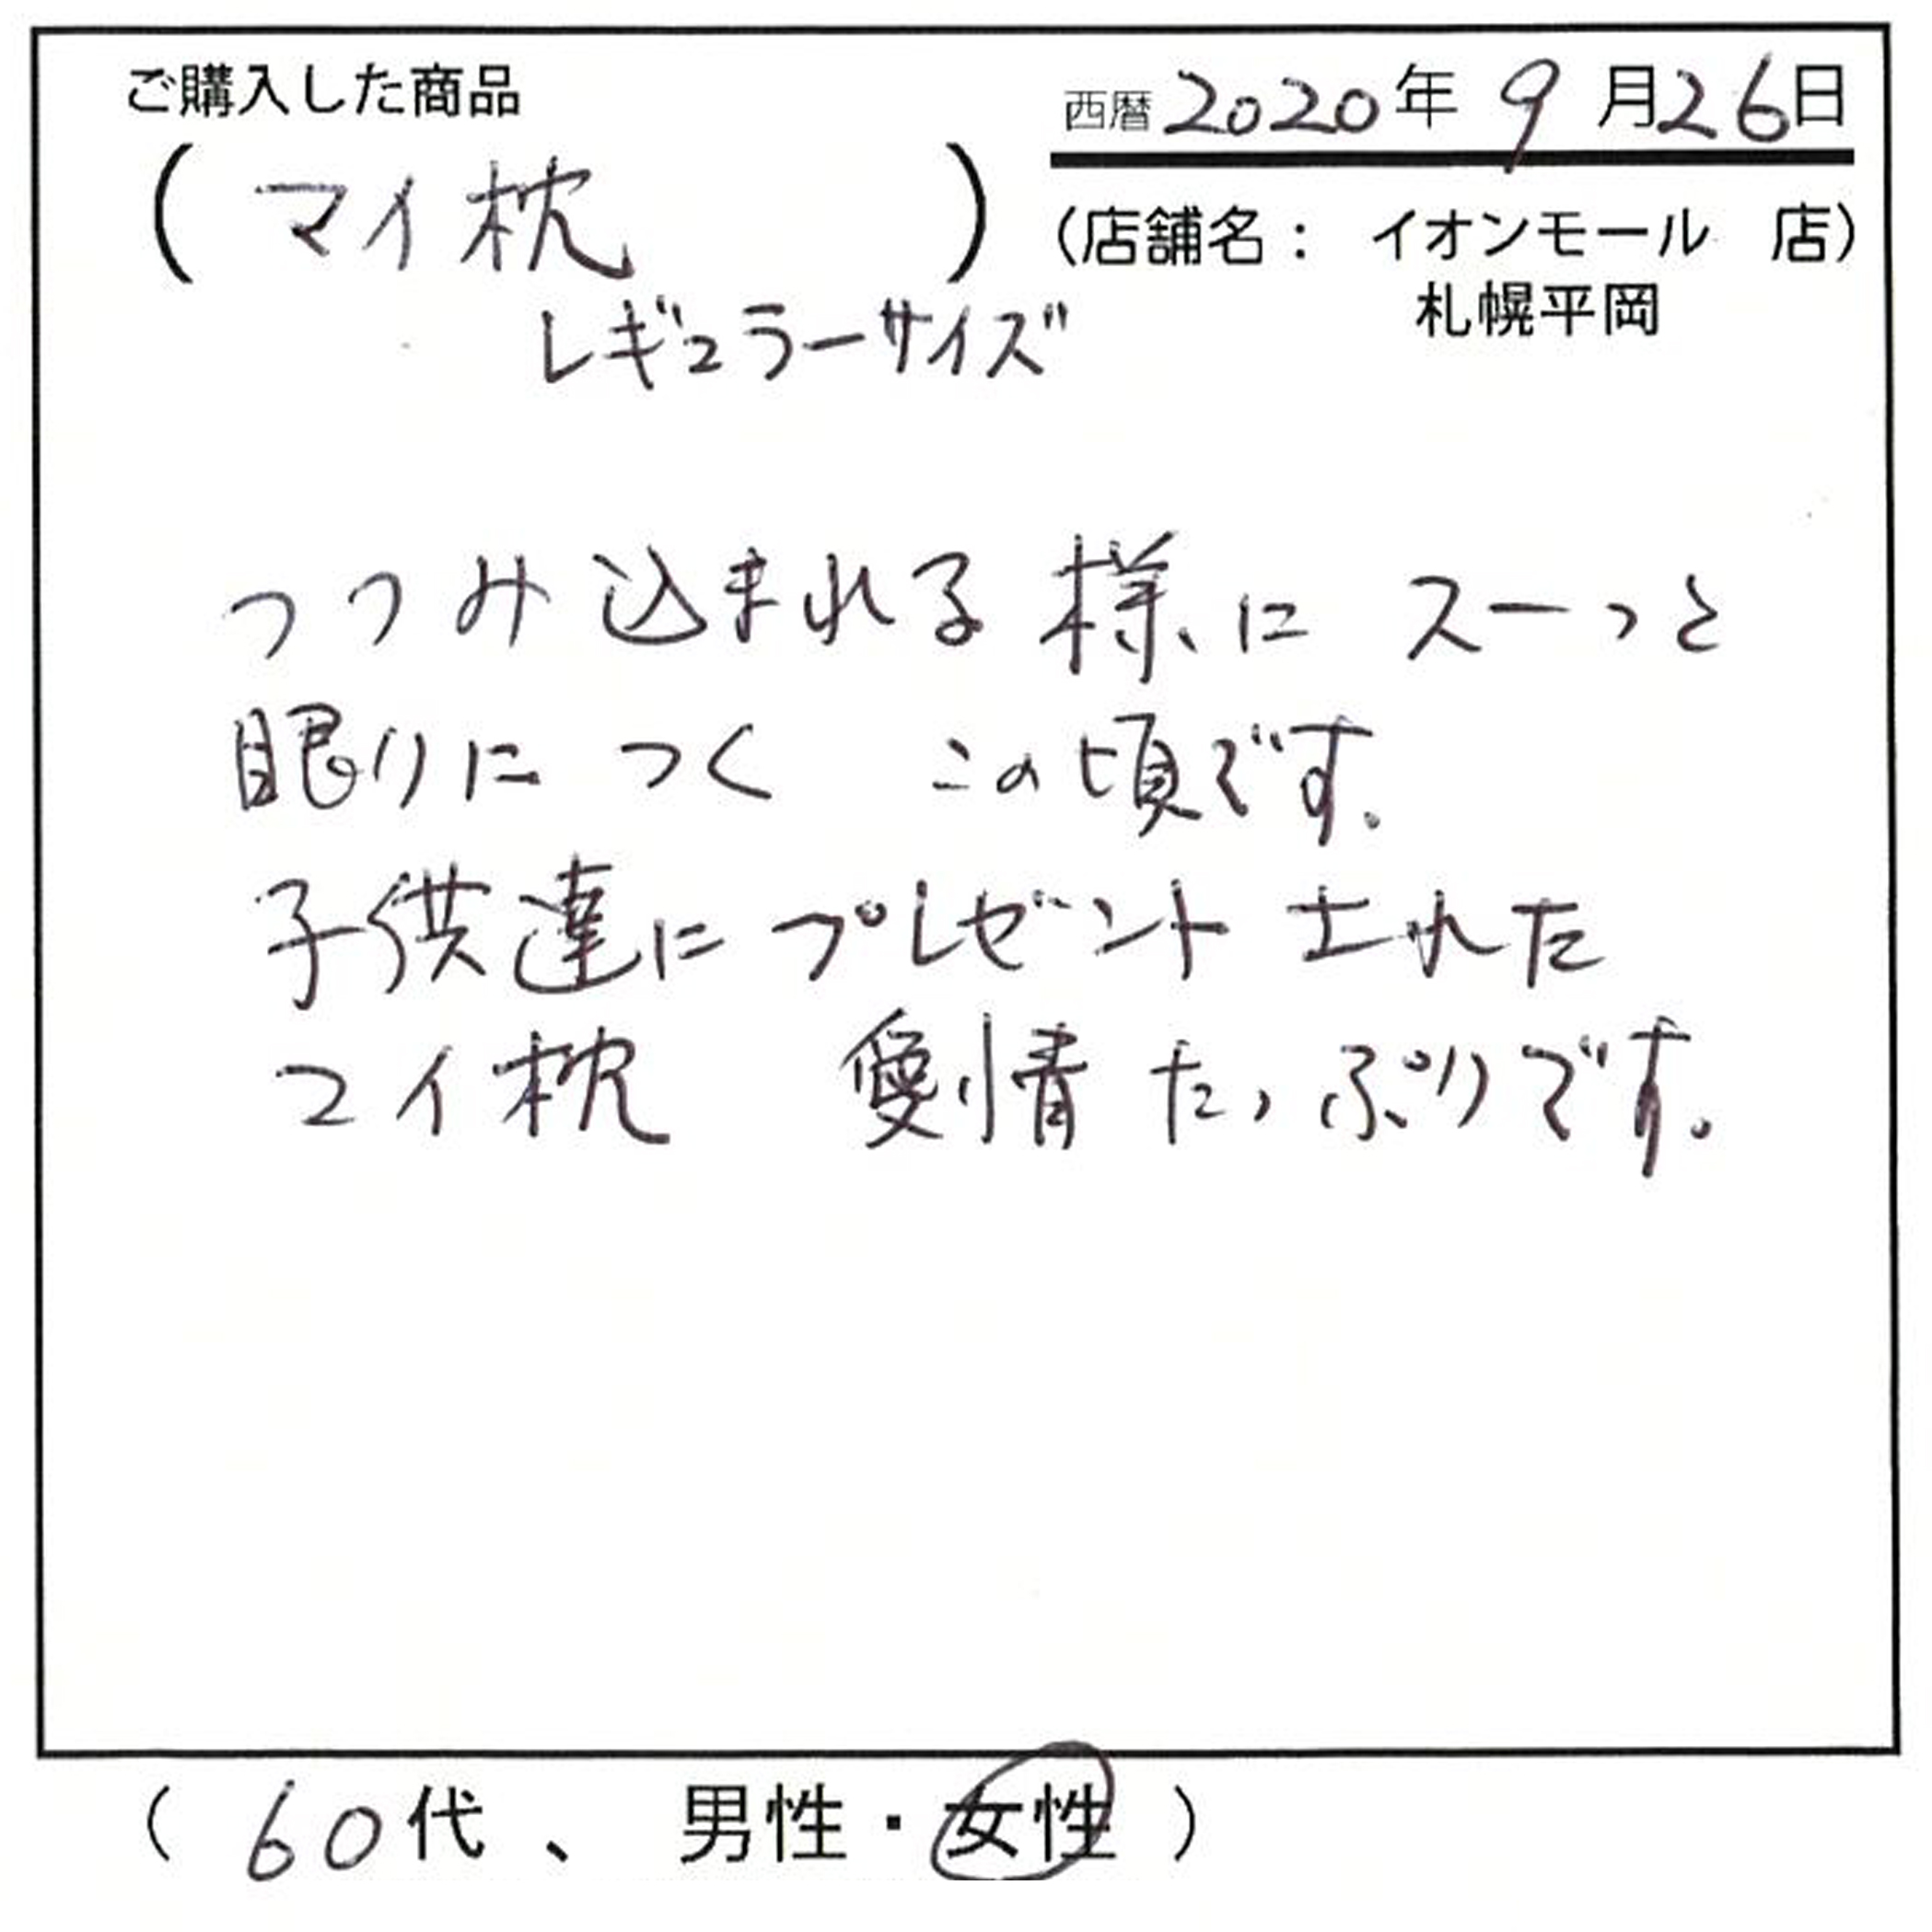 ご購入した商品
西暦2020年 9月26日
(マイ枕)
レギュラーサイズ
(店舗名： イオンモール 店)
札幌平岡
つつみ込まれる様に スーっと
眠りに つく この頃です。
子供達に プレゼント された
マイ枕 愛情 たっぷりです。
( 60代 、 男性・女性 )